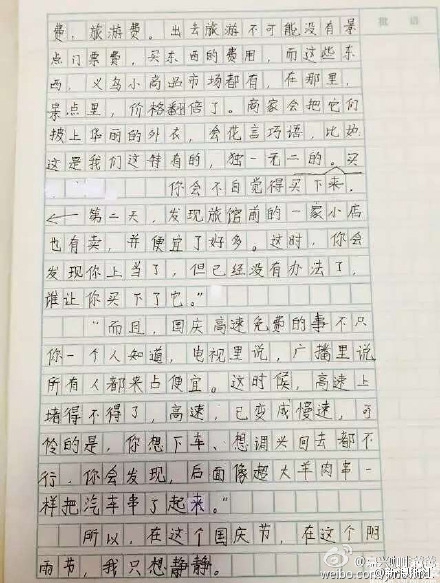 批 语
费，旅游费。出去旅游不可能没有景
点门票费，买东西的费用，而这些东
西，义乌小商品市场都有，在那里，
景点里，价格翻倍了。商家会把它们
披上华丽的外衣，会花言巧语，比如
这是我们这特有的，独一无二的。买
你会不自觉得买下来。
第二天，发现旅馆前的一家小店
也有卖，并便宜了好多。这时，你会
发现你上当了，但已经没有办法了，
谁让你买下了它。”
“而且，国庆高速免费的事不只
你一个人知道，电视里说，广播里说
所有人都来占便宜。这时候，高速上
堵得不得了，高速，已变成慢速，可
怜的是，你想下车、想调头回去都不
行，你会发现，后面像超大羊肉串一
样把汽车串了起来。”
所以，在这个国庆节，在这个阴
雨节，我只想静静。
weibo.com